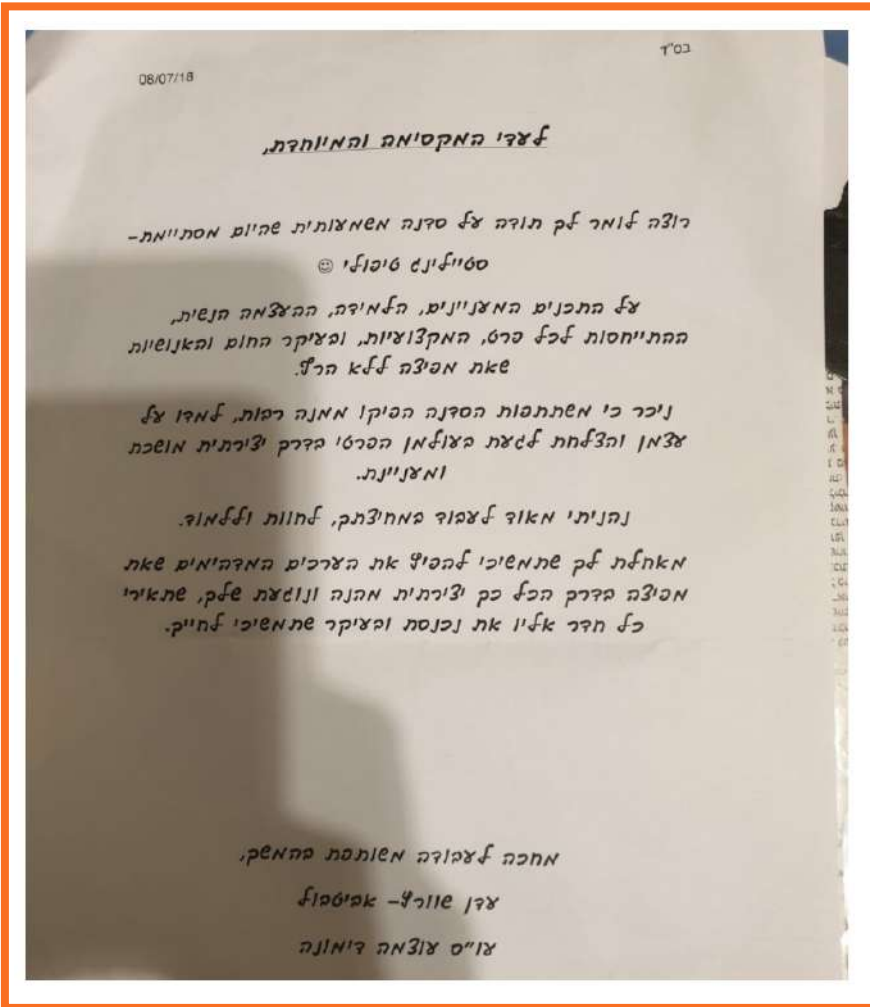 בס"ד
08/07/18
לעדי המקסימה והמיוחדת,
רוצה לומר לך תודה על סדנה משמעותית שהיום מסתיימת-
סטיילינג טיפולי ☺
על התכנים המעניינים, הלמידה, ההעצמה הנשית,
ההתייחסות לכל פרט, המקצועיות, ובעיקר החום והאנושיות
שאת מפיצה ללא הרף.
ניכר כי משתתפות הסדנה הפיקו ממנה רבות, למדו על
עצמן והצלחת לגעת בעולמן הפרטי בדרך יצירתית מושכת
ומעניינת.
נהניתי מאוד לעבוד במחיצתך, לחוות וללמוד.
מאחלת לך שתמשיכי להפיץ את הערכים המדהימים שאת
מפיצה בדרך הכל כך יצירתית מהנה ונוגעת שלך, שתאירי
כל חדר אליו את נכנסת ובעיקר שתמשיכי לחייך.
מחכה לעבודה משותפת בהמשך,
עדן שוורץ- אביטבול
עו"ס עוצמה דימונה